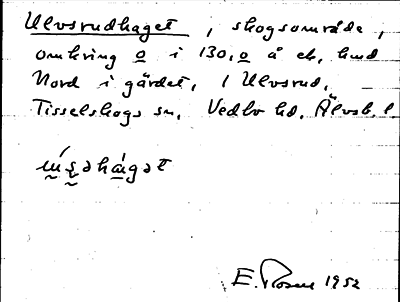 Ulvsrudhaget, skogsområde,
omkring o i 130,0 å ek. kund
Nord i gärdet, 1 Ulvsrud,
Tisselskogs sn, Vedbo hd, Älvsb. l.
E. Rosen 1952